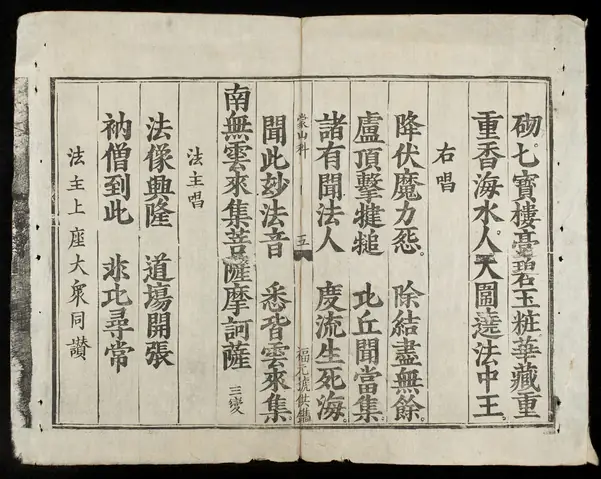 砌。七寶樓臺碧玉粧華藏重
重香海水。人天圍遶法中王。
右唱
降伏魔力怨。 除結盡無餘。
盧頂擊犍槌 比丘聞當集。
諸有聞法人 慶流生死海。
蒙山科 五 福元號供
聞此玅法音 悉皆雲來集。
南無雲來集菩薩摩訶薩 三變
法主唱
法像興隆 道場開張
衲僧到此 非比尋常
法主上座大衆同讚